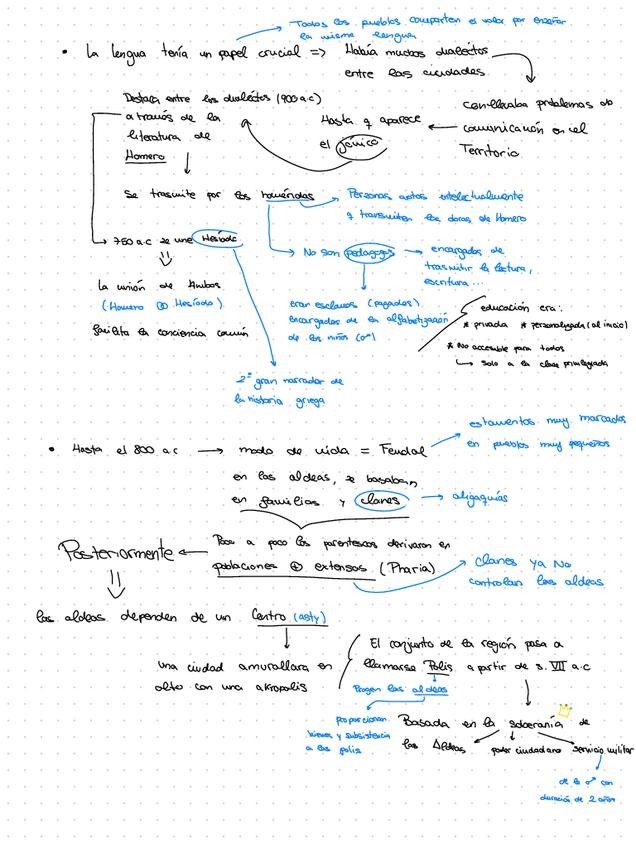 Todos los pueblos comparten el valor por enseñar
la misma lengua
• La lengua tenía un papel crucial => Había muchos dialectos
entre las ciudades
conllevaba problemas de
comunicación en el
Territorio
Hasta q aparece
el jónico
Destaca entre los dialectos (900 a.c)
a través de la
literatura de
Homero
Se trasmite por los homéridas
Personas aptas intelectualmente
q transmiten las obras de Homero
No son pedagogos
encargados de
trasmitir la lectura,
escritura...
eran esclavos (pagados)
encargados de la alfabetización
de los niños (♂)
educación era:
* privada * personalizada (al inicio)
* No accesible para todos
↳ solo a la clase privilegiada
→ 750 a.c se une Hesíodo
la unión de Ambos
(Homero ⊕ Hesíodo)
facilita la conciencia común
2º gran narrador de
la historia griega
• Hasta el 800 a.c → modo de vida = Feudal
estamentos muy marcados
en pueblos muy pequeños
en las aldeas, se basaban
en familias y clanes → oligarquías
Poco a poco los parentescos derivaron en
poblaciones ⊕ extensas (Phatria)
Clanes ya No
controlan las aldeas
Posteriormente
las aldeas dependen de un Centro (asty)
una ciudad amurallara en
alto con una akropolis
El conjunto de la región pasa a
llamarse Polis a partir de s. VII a.c
Rigen las aldeas
proporcionan
bienes y subsistencia
a las polis
Basada en la soberanía de
las Aldeas poder ciudadano servicio militar
de los ♂ con
duración de 2 años